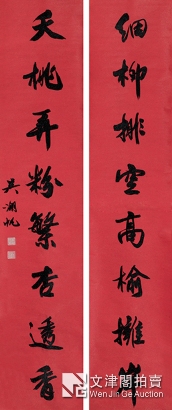 細柳排空高榆擁岸
夭桃弄粉繁杏透香
吳湖帆
文津閣拍賣
WenJin Ge Auction